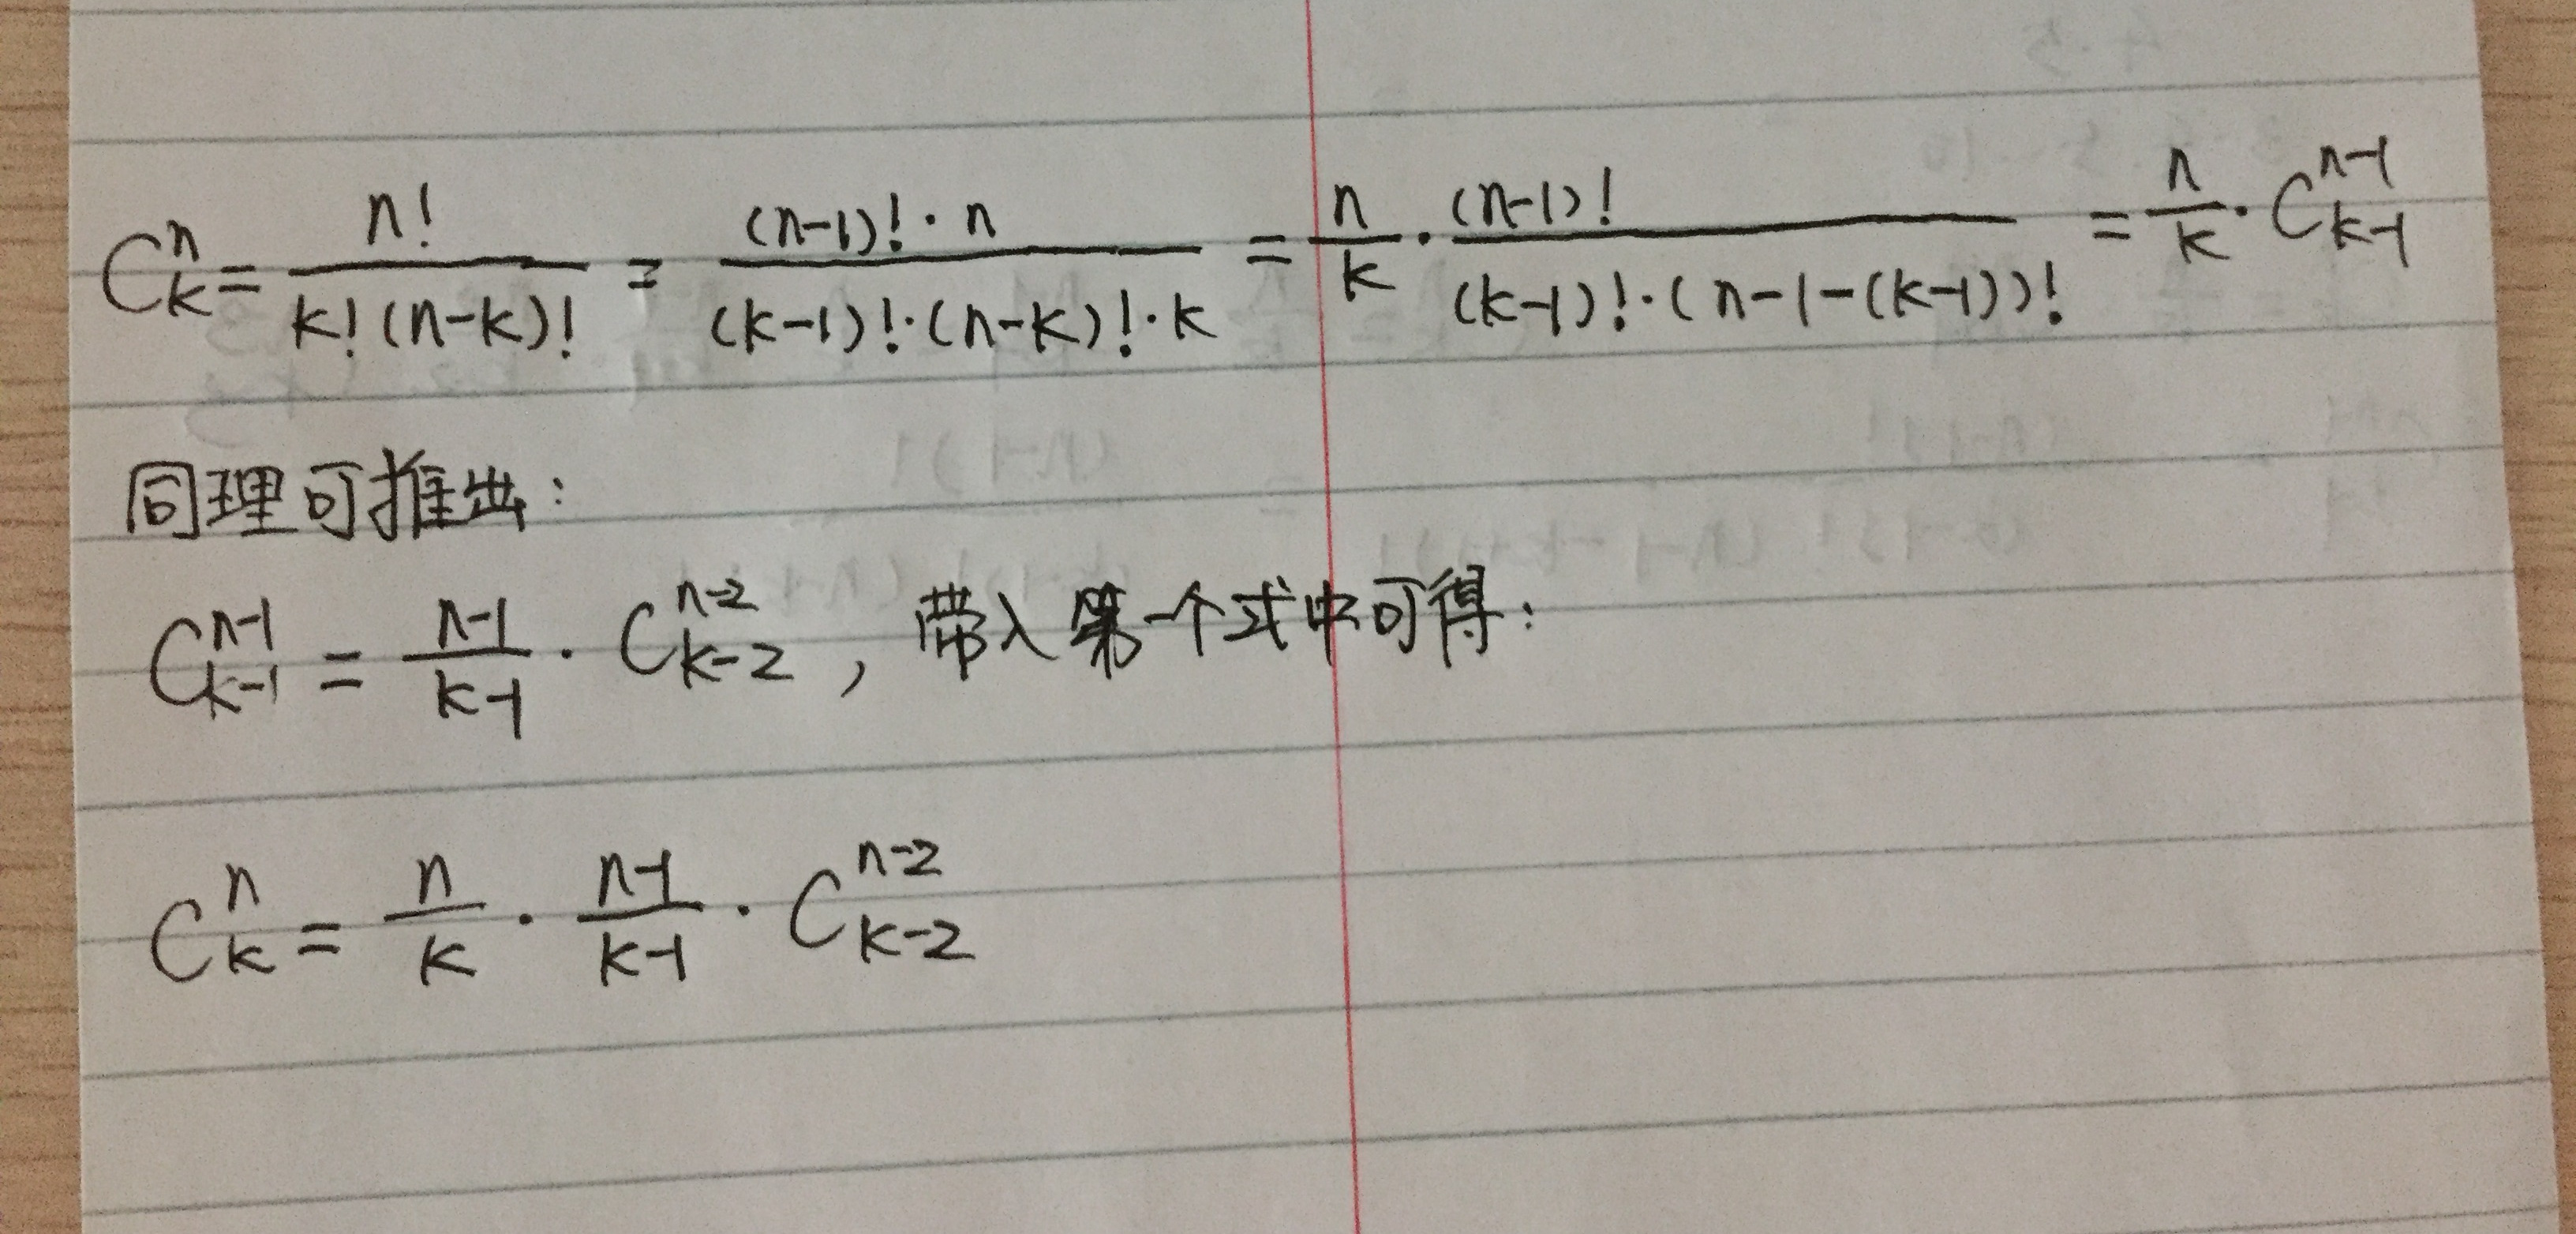 C^n_k = \frac{n!}{k!(n-k)!} = \frac{(n-1)!·n}{(k-1)!·(n-k)!·k} = \frac{n}{k}·\frac{(n-1)!}{(k-1)!·(n-1-(k-1))!} = \frac{n}{k}·C^{n-1}_{k-1}
同理可推出：
C^{n-1}_{k-1} = \frac{n-1}{k-1}·C^{n-2}_{k-2}，带入第一个式中可得：
C^n_k = \frac{n}{k}·\frac{n-1}{k-1}·C^{n-2}_{k-2}